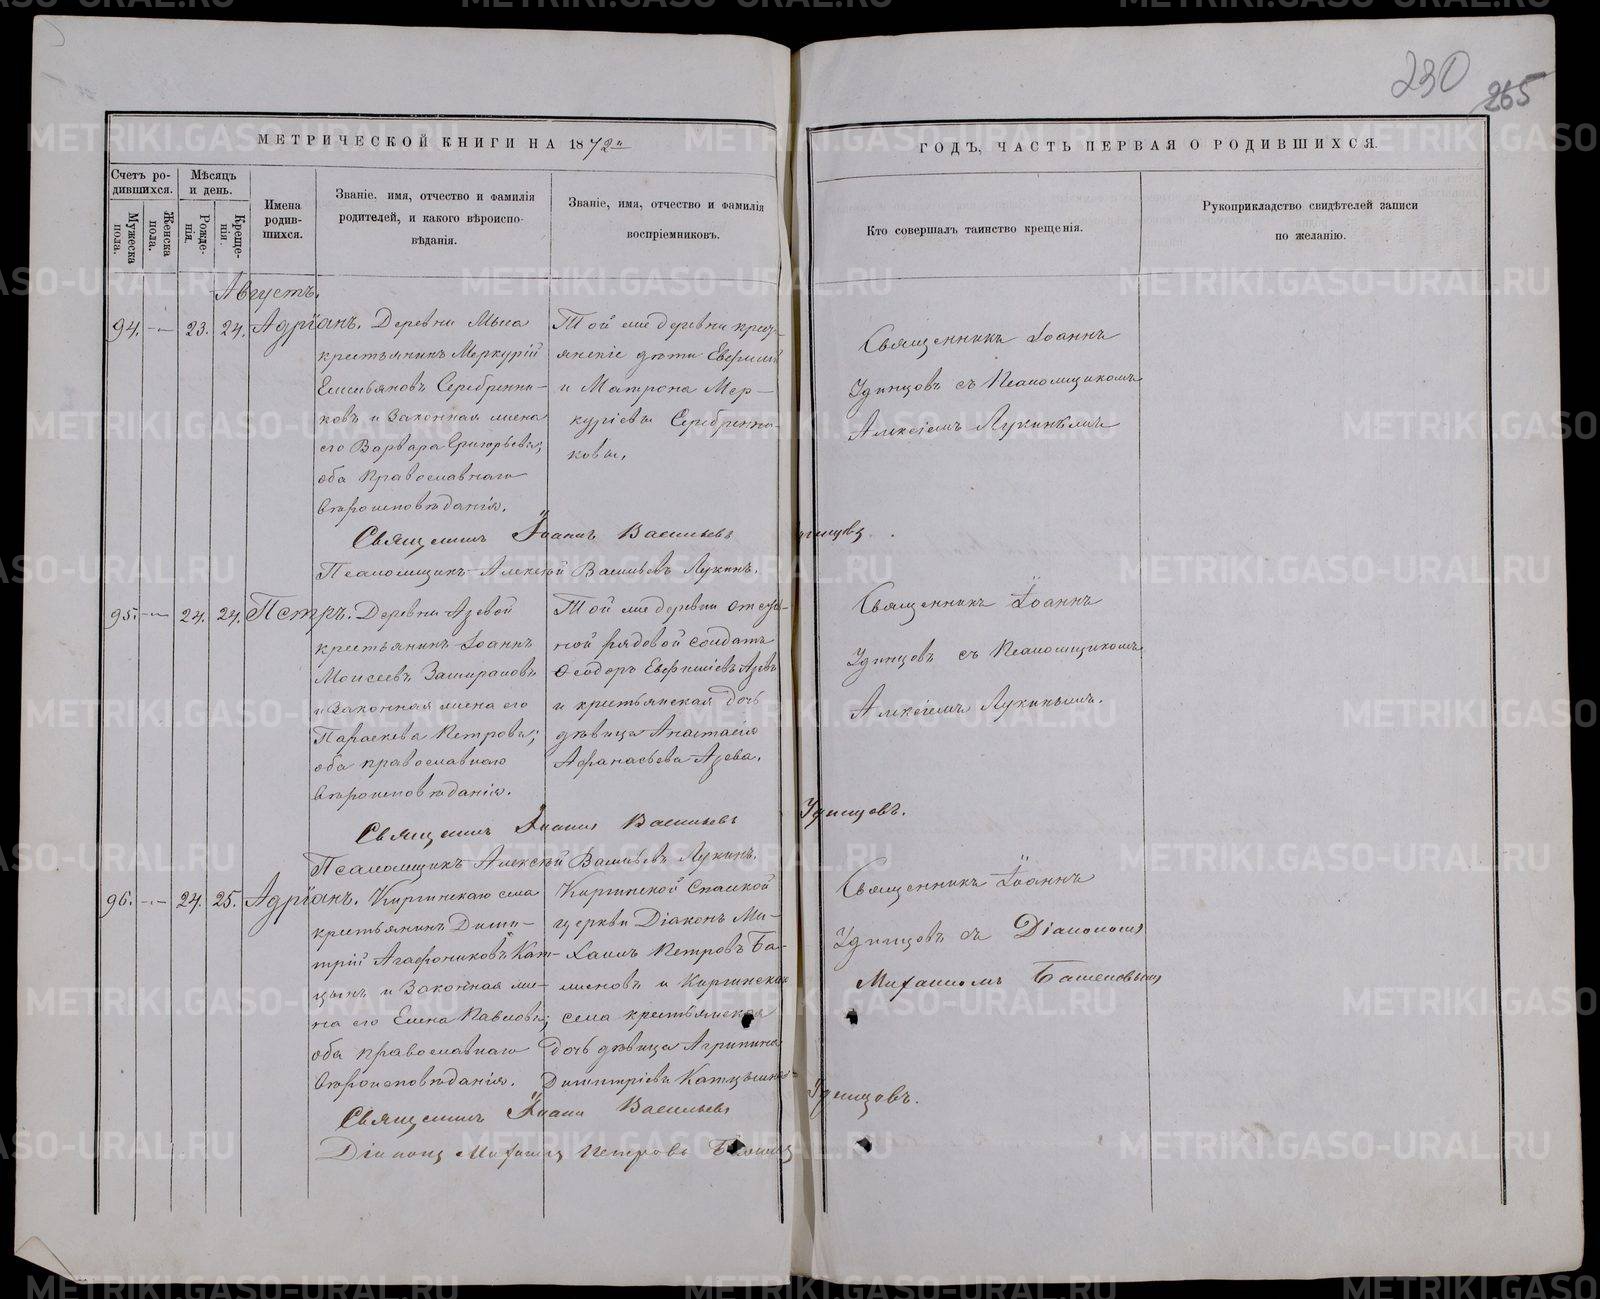 230 265
МЕТРИЧЕСКОЙ КНИГИ НА 1872й
ГОДЪ, ЧАСТЬ ПЕРВАЯ О РОДИВШИХСЯ.
Счетъ ро-
дившихся.
Мужеска
пола.
Женска
пола.
Мѣсяцъ
и день.
Рожде-
нія.
Креще-
нія.
Имена
родив-
шихся.
Званіе, имя, отчество и фамилія
родителей, и какого вѣроиспо-
вѣданія.
Званіе, имя, отчество и фамилія
воспріемниковъ.
Кто совершалъ таинство крещенія.
Рукоприкладство свидѣтелей записи
по желанію.
Августъ.
94. -"- 23. 24. Адріанъ.
Деревни Мыса
крестьянинъ Меркурій
Емельяновъ Серебренни-
ковъ и Законная жена
его Варвара Григорьева;
оба Православнаго
вѣроисповѣданія.
Той же деревни крес-
янскіе дѣти Евфимій
и Матрона Мер-
куріевы Серебренни-
ковы.
Священникъ Іоаннъ
Удинцовъ съ Псаломщикомъ
Алексіемъ Лукинымъ
Священникъ Іоаннъ Васильевъ Удинцовъ
Псаломщикъ Алексѣй Васильевъ Лукинъ.
95. -"- 24. 24. Петръ.
Деревни Азевой
крестьянинъ Іоаннъ
Моисеевъ
и Законная жена его
Параскева Петрова;
оба православнаго
вѣроисповѣданія.
Той же деревни
рядовой солдатъ
Ѳеодоръ Евфиміевъ Азевъ
и крестьянская дочь
дѣвица Анастасія
Афанасьева Азева.
Священникъ Іоаннъ
Удинцовъ съ Псаломщикомъ
Алексіемъ Лукинымъ.
Священникъ Іоаннъ Васильевъ Удинцовъ.
Псаломщикъ Алексѣй Васильевъ Лукинъ.
96. -"- 24. 25. Адріанъ.
Киргинскаго села
крестьянинъ Дими-
трій Агафониковъ Кат-
цынъ и Законная же-
на его Елена Павлова;
оба православнаго
вѣроисповѣданія.
Киргинской Спаской
церкви Діаконъ Ми-
хаилъ Петровъ Ба-
женовъ и Киргинскаго
села крестьянская
дочь дѣвица Агрипина
Димитріева Катцына.
Священникъ Іоаннъ
Удинцовъ съ Діакономъ
Михаиломъ Баженовымъ
Священникъ Іоаннъ Васильевъ Удинцовъ.
Діаконъ Михаилъ Петровъ Баженовъ
METRIKI.GASO-URAL.RU